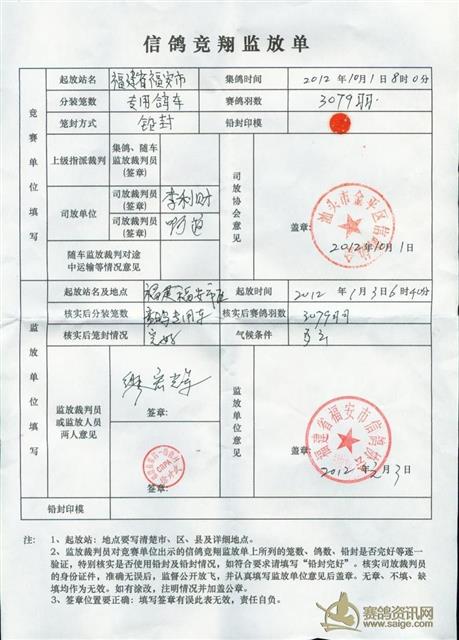 信鸽竞翔监放单
竞赛单位填写
起放站名 福建省福安市 集鸽时间 2012年10月1日8时0分
分装笼数 专用鸽车 赛鸽羽数 3079羽
笼封方式 铅封 铅封印模
上级指派裁判 集鸽、随车监放裁判员(签章)
司放单位 司放裁判员(签章) 李利财
司放裁判员(签章)
司放协会意见
汕头市金平区信鸽协会
盖章:
2012年10月1日
随车监放裁判对途中运输等情况意见
监放单位填写
起放站名及地点 起放时间 2012年 月3日6时40分
核实后分装笼数 赛鸽专用车 核实后赛鸽羽数 3079羽
核实后笼封情况 完好 气候条件 多云
监放裁判员或监放人员两人意见
签章:
签章:
监放单位意见
福建省福安市信鸽协会
盖章:
2012年 月3日
铅封印模
注: 1、起放站:地点要写清楚市、区、县及详细地点。
2、监放裁判员对竞赛单位出示的信鸽竞翔监放单上所列的笼数、鸽数、铅封是否完好等逐一
验证,特别核实是否使用铅封及铅封情况,如符合要求请填写“铅封完好”。核实司放裁判员
的身份证件,准确无误后,监督公开放飞,并认真填写监放单位意见后盖章。无章、不填、缺
填均作为无效。如有涂改,注明情况并加盖公章。
3、签章位置要正确:填写签章有误此表无效,责任自负。
赛鸽资讯网
www.saige.com